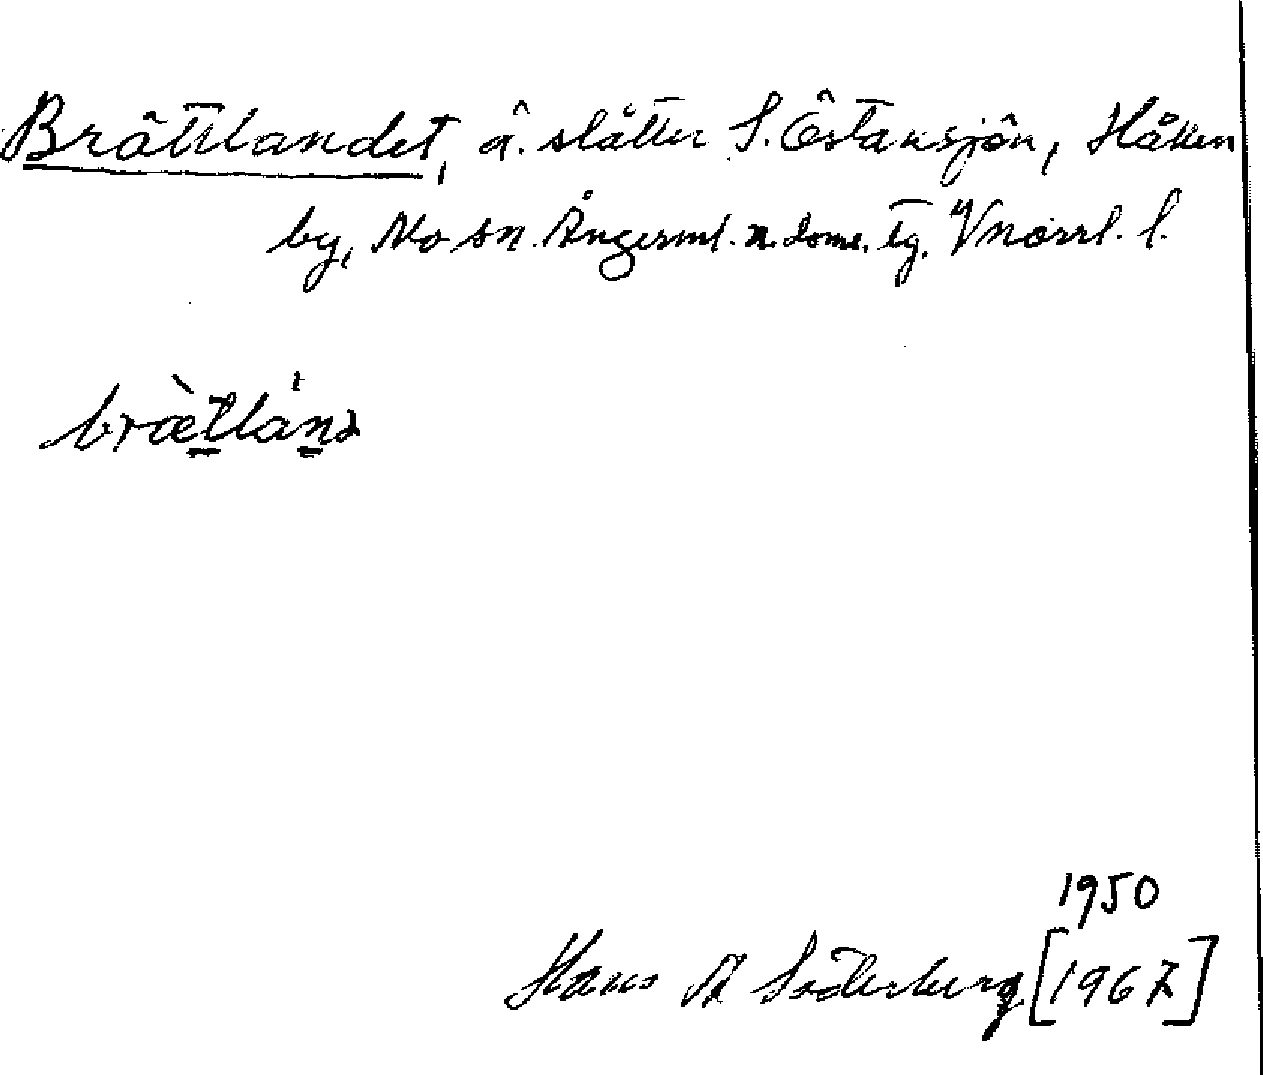 Brättlandet, ä. slåtter S. Östansjön, Håkan
by, Mo sn. Ångerml. n. doms. tg, Vnorrl. l.
brætlánd
1950
Hans A Söderberg [1967]